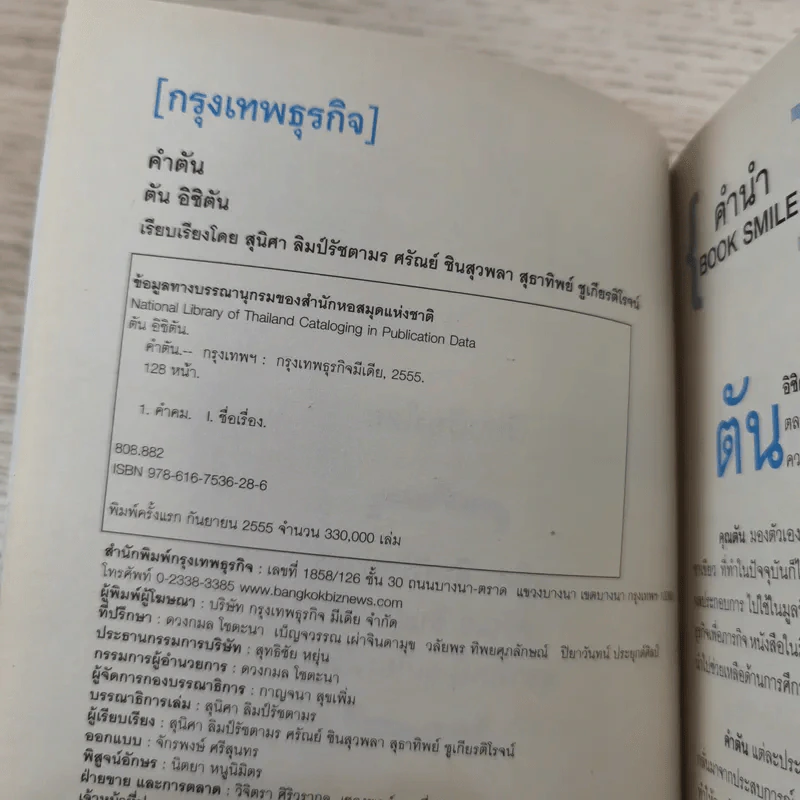 [กรุงเทพธุรกิจ]
คำตัน
ตัน อิชิตัน
เรียบเรียงโดย สุนิศา ลิมป์รัชตามร ศรัณย์ ชินสุวพลา สุธาทิพย์ ชูเกียรติโรจน์
ข้อมูลทางบรรณานุกรมของสำนักหอสมุดแห่งชาติ
National Library of Thailand Cataloging in Publication Data
ตัน อิชิตัน.
คำตัน.-- กรุงเทพฯ : กรุงเทพธุรกิจมีเดีย, 2555.
128 หน้า.
1. คำคม. I. ชื่อเรื่อง.
808.882
ISBN 978-616-7536-28-6
พิมพ์ครั้งแรก กันยายน 2555 จำนวน 330,000 เล่ม
สำนักพิมพ์กรุงเทพธุรกิจ : เลขที่ 1858/126 ชั้น 30 ถนนบางนา-ตราด แขวงบางนา เขตบางนา กรุงเทพฯ
โทรศัพท์ 0-2338-3385 www.bangkokbiznews.com
ผู้พิมพ์ผู้โฆษณา : บริษัท กรุงเทพธุรกิจ มีเดีย จำกัด
ที่ปรึกษา : ดวงกมล โชตะนา เบ็ญจวรรณ เผ่าจินดามุข วลัยพร ทิพยศุภลักษณ์ ปิยาวันทน์ ประยุกต์ศิลป์
ประธานกรรมการบริษัท : สุทธิชัย หยุ่น
กรรมการผู้อำนวยการ : ดวงกมล โชตะนา
ผู้จัดการกองบรรณาธิการ : กาญจนา สุขเพิ่ม
บรรณาธิการเล่ม : สุนิศา ลิมป์รัชตามร
ผู้เรียบเรียง : สุนิศา ลิมป์รัชตามร ศรัณย์ ชินสุวพลา สุธาทิพย์ ชูเกียรติโรจน์
ออกแบบ : จักรพงษ์ ศรีสุนทร
พิสูจน์อักษร : นิตยา หนูนิมิตร
ฝ่ายขาย และการตลาด : วิจิตรา
คำนำ
BOOK SMILE
ตัน
คุณตัน มองตัวเอง
ที่ทำในปัจจุบันก็ไ
ไปใช้ในมูล
ธุรกิจเพื่อภารกิจ หนังสือในมื
นำไปช่วยเหลือด้านการศึก
คำตัน แต่ละประ
กลั่นมาจากประสบการณ์